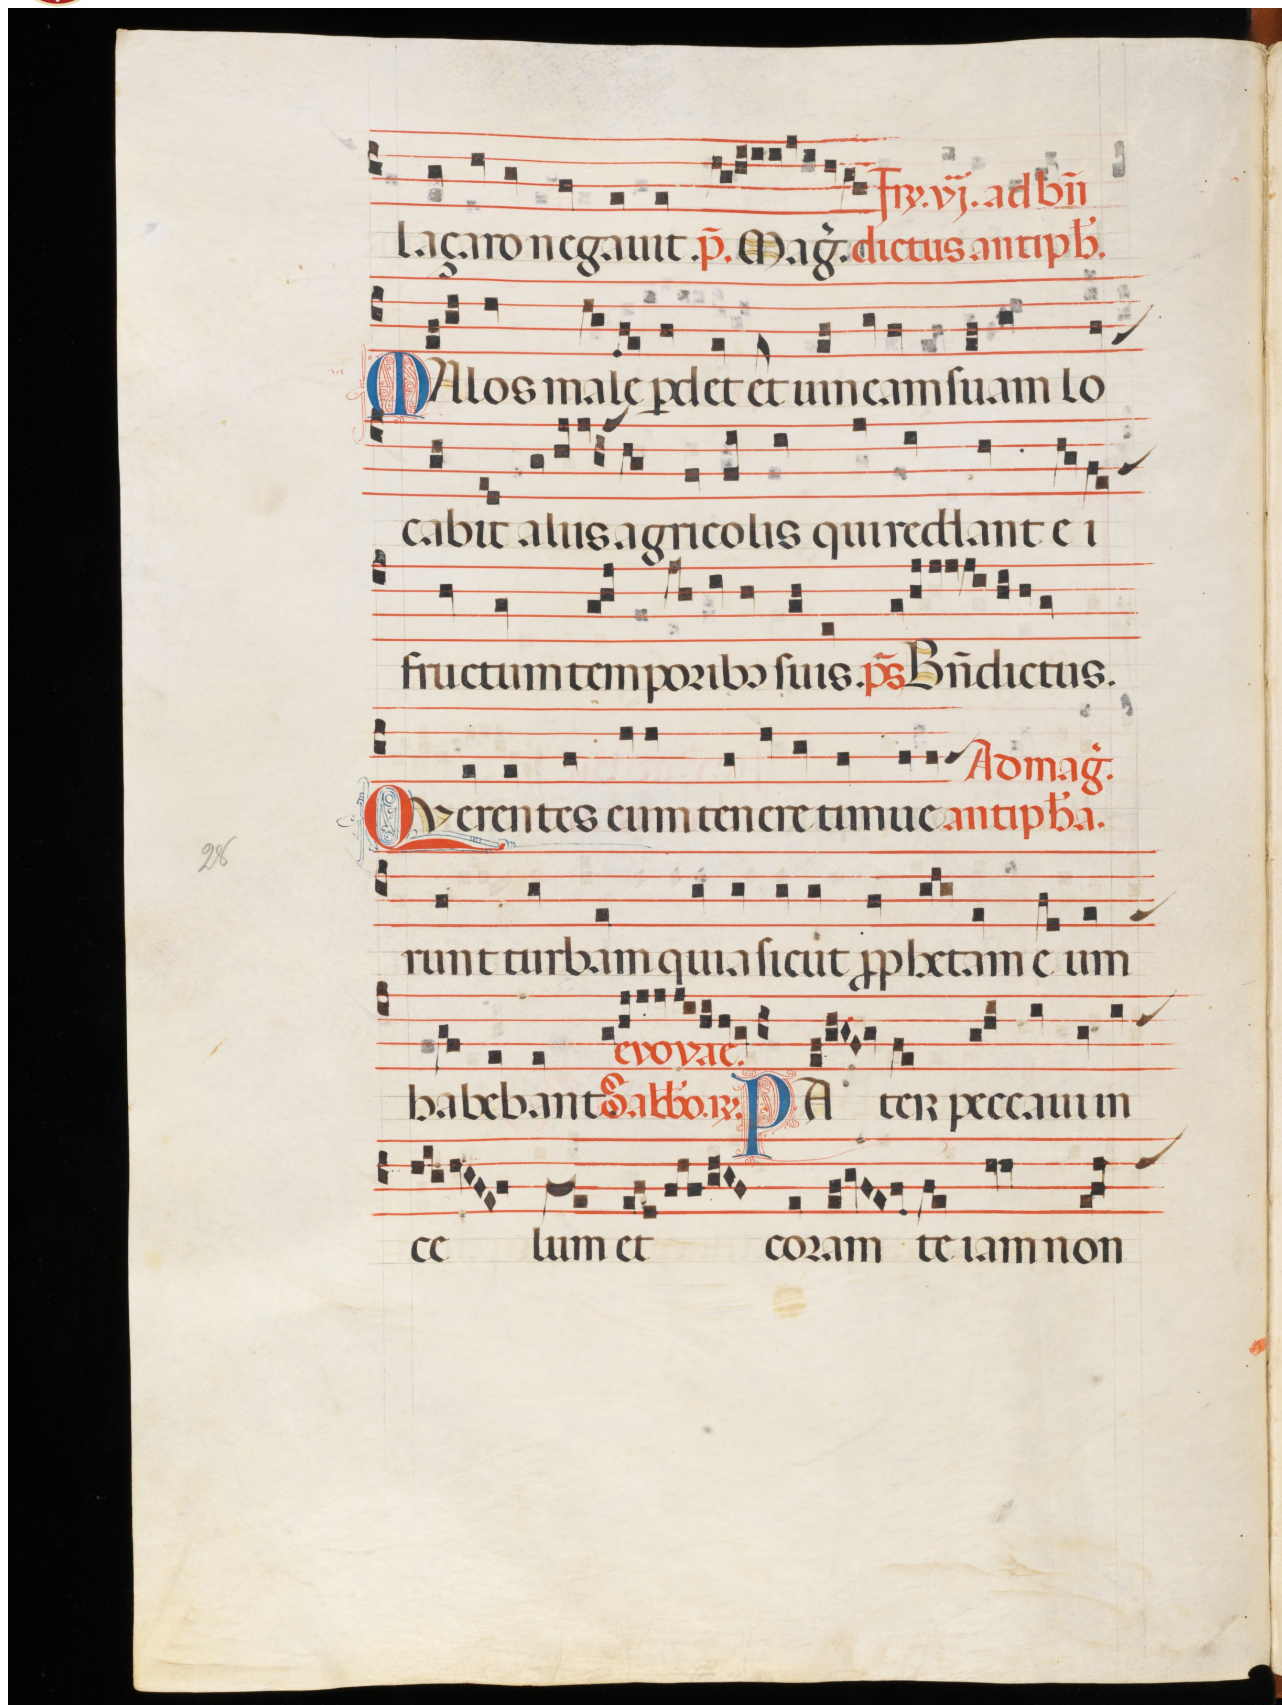 Fr̃. vj. ad bñ
laçaro negauit. p̃. Mag̃. dictus antiph̃.
MAlos male pdet et uineam suam lo
cabit aliis agricolis qui reddant e i
fructum temporibꝰ suis. p̃s Bñdictus.
Ad mag̃.
QVerentes eum tenere timue antiph̃a.
28
runt turbam quia sicut pphetam e um
evovae.
habebant. Sabb̃o. r̃. PA ter peccaui in
ce lum et coram te iam non